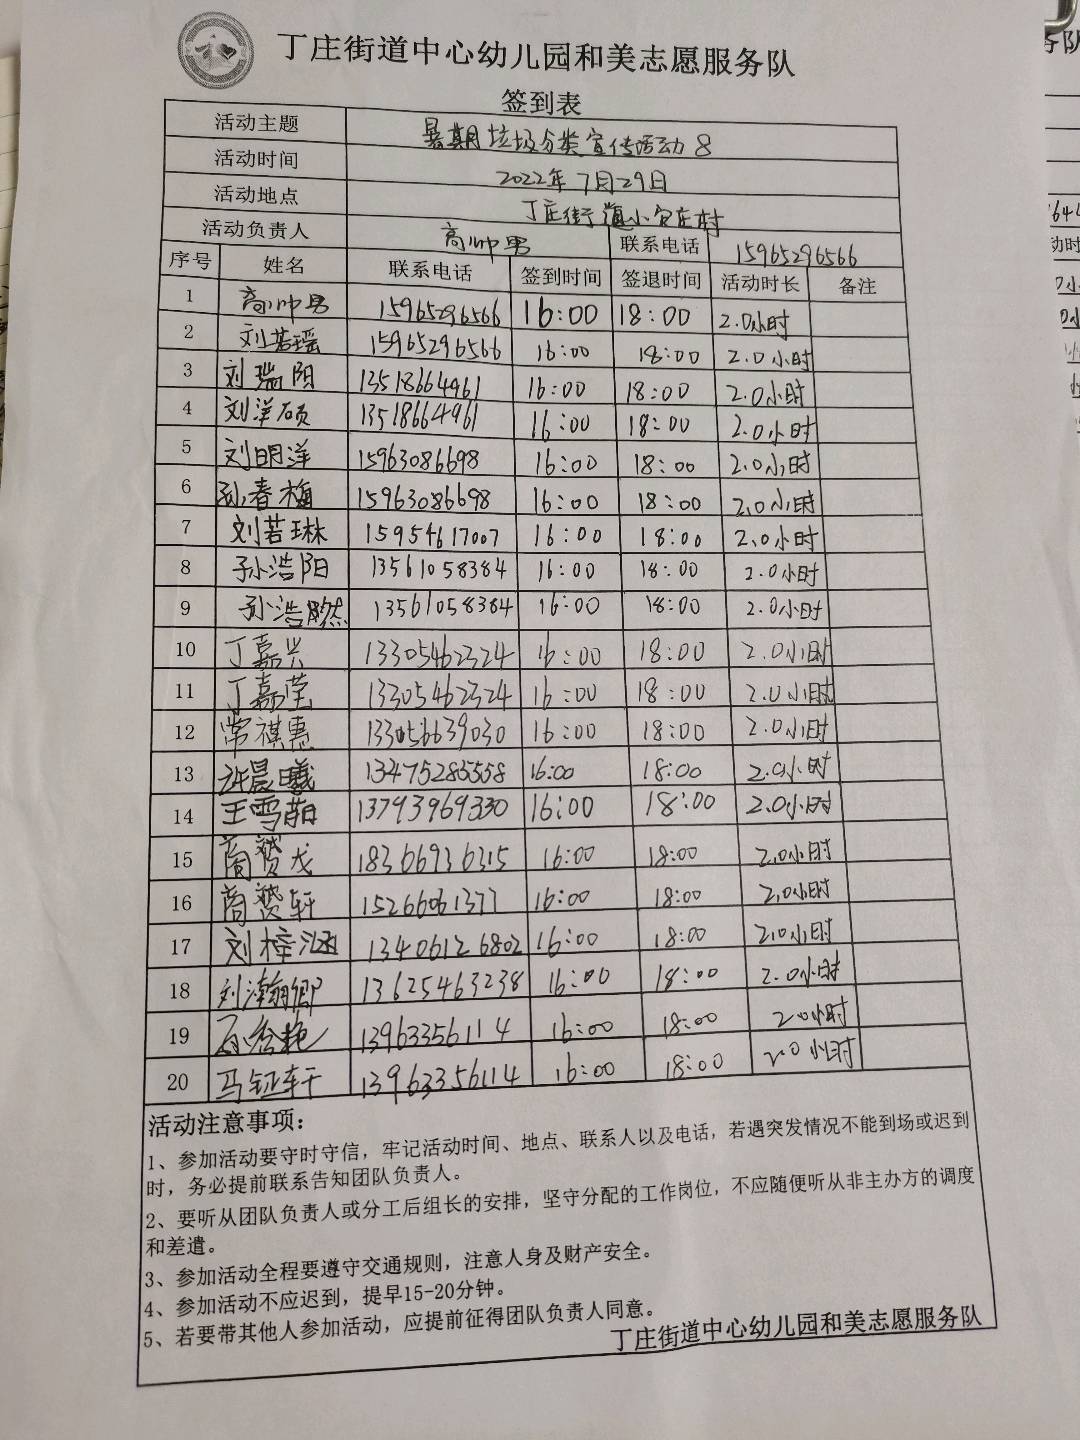 丁庄街道中心幼儿园和美志愿服务队
签到表
活动主题 暑期垃圾分类宣传活动8
活动时间 2022年7月29日
活动地点 丁庄街道小宋庄村
活动负责人 高帅男 联系电话 15965296566
序号 姓名 联系电话 签到时间 签退时间 活动时长 备注
1 高帅男 15965296566 16:00 18:00 2.0小时
2 刘若瑶 15965296566 16:00 18:00 2.0小时
3 刘瑞阳 13518664961 16:00 18:00 2.0小时
4 刘洋硕 13518664961 16:00 18:00 2.0小时
5 刘明洋 15963086698 16:00 18:00 2.0小时
6 孙春梅 15963086698 16:00 18:00 2.0小时
7 刘若琳 15954617007 16:00 18:00 2.0小时
8 孙浩阳 13561058384 16:00 18:00 2.0小时
9 孙浩然 13561058384 16:00 18:00 2.0小时
10 丁嘉兴 13305462324 16:00 18:00 2.0小时
11 丁嘉莹 13305462324 16:00 18:00 2.0小时
12 常祺惠 133056639030 16:00 18:00 2.0小时
13 许晨曦 13475285558 16:00 18:00 2.0小时
14 王雪萌 13793969330 16:00 18:00 2.0小时
15 商赟戈 18366936315 16:00 18:00 2.0小时
16 商赟轩 15266061377 16:00 18:00 2.0小时
17 刘梓涵 13406126802 16:00 18:00 2.0小时
18 刘瀚卿 13625463238 16:00 18:00 2.0小时
19 13963356114 16:00 18:00 2.0小时
20 马钰轩 13963356114 16:00 18:00 2.0小时
活动注意事项：
1、参加活动要守时守信，牢记活动时间、地点、联系人以及电话，若遇突发情况不能到场或迟到
时，务必提前联系告知团队负责人。
2、要听从团队负责人或分工后组长的安排，坚守分配的工作岗位，不应随便听从非主办方的调度
和差遣。
3、参加活动全程要遵守交通规则，注意人身及财产安全。
4、参加活动不应迟到，提早15-20分钟。
5、若要带其他人参加活动，应提前征得团队负责人同意。
丁庄街道中心幼儿园和美志愿服务队